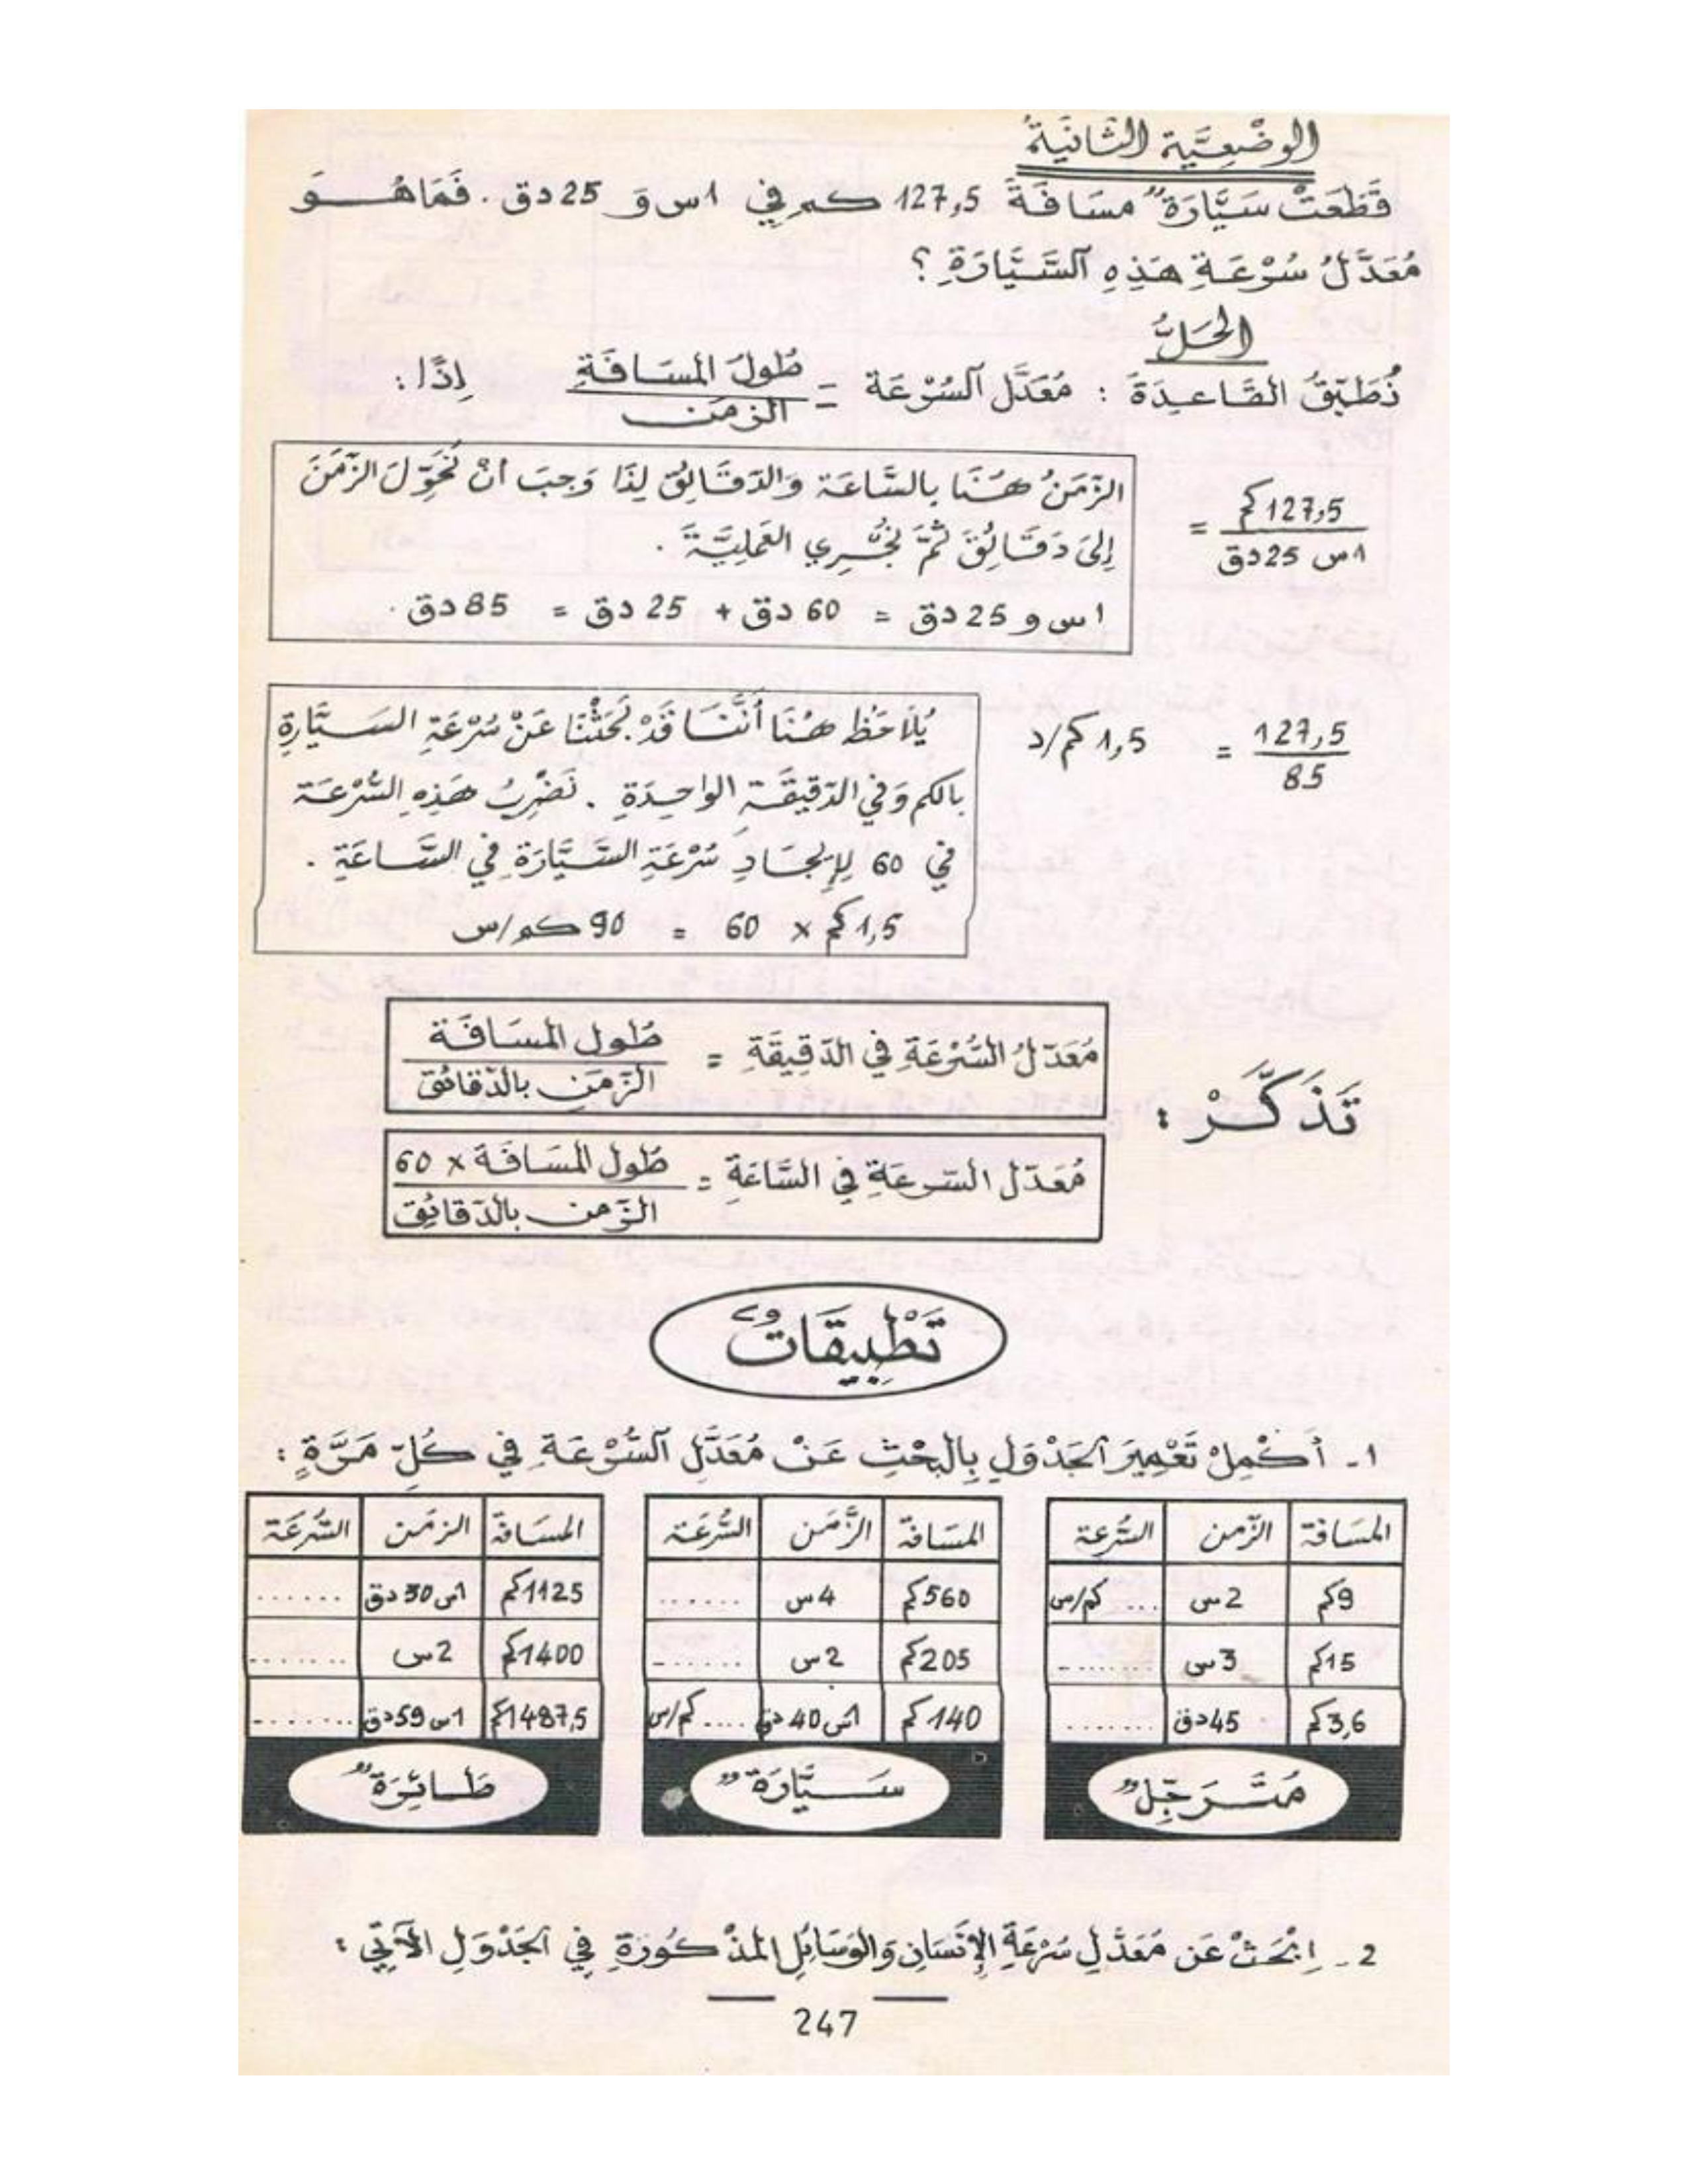 الوضْعِيَّة الثانيَةُ
قَطَعَتْ سَيَّارَةٌ مسَافَةَ 127,5 كم في 1س وَ 25 دق . فَمَا هُوَ
مُعَدَّلُ سُرْعَةِ هَذِهِ آلسَّيَّارَةِ ؟
الحَلُّ
نُطَبِّقُ القَاعِدَةَ : مُعَدَّل آلسُرْعَة = طُولُ المسَافَةِ / الزمَن إِذًا :
127,5 كم / 1س 25 دق =
الزَّمَنُ هُنَا بِالسَّاعَة وَالدَقَائِقِ لِذَا وَجبَ أنْ نُحَوِّلَ الزَّمَنَ
إِلىَ دَقَائِقَ ثُمَّ نُجْرِي العَمَلِيَّةَ .
1س و 25 دق = 60 دق + 25 دق = 85 دق .
127,5 / 85 = 1,5 كم/د
يُلاَحَظُ هُنَا أَنَّنَا قَدْ بَحَثْنَا عَنْ سُرْعَةِ السَيَّارةِ
بالكم وَفي الدّقيقَةِ الواحِدَةِ . نَضْرِبُ هَذِهِ السُّرْعَة
في 60 لِإِيجَادِ سُرْعَةِ السَّيَّارَةِ في السَّاعَةِ .
1,5 كم x 60 = 90 كم/س
تَذَكَّرْ :
مُعَدّلُ السُّرْعَةِ في الدّقِيقَةِ = طُول المسَافَة / الزّمَنِ بالدّقائق
مُعَدّل السّرعَةِ في السَّاعَةِ = طُول المسَافَة x 60 / الزّمن بالدّقائِق
تَطْبِيقَاتٌ
1 - أَكْمِلْ تَعْمِيرَ آلجَدْوَلِ بِالبَحْثِ عَنْ مُعَدَّلِ آلسُّرْعَةِ في كُلِّ مَرَّةٍ :
المسَافة الزّمن السُّرعة
9كم 2س ... كم/س
15كم 3س ........
3,6كم 45دق .......
مُتَرَجِّلٌ
المسَافة الزَّمَن السُّرعَة
560كم 4س .......
205كم 2س .......
140كم 1س 40 دق .... كم/س
سَيَّارَةٌ
المسَافة الزمَن السُّرعَة
1125كم 1س 30 دق ......
1400كم 2س .......
1487,5كم 1س 59 دق ........
طَائِرَةٌ
2 - اِبْحَثْ عَن مُعَدَّلِ سُرْعَةِ الإِنْسَانِ وَالوَسَائِلِ المذْكُورَةِ فِي آلجَدْوَلِ الآتِي :
247